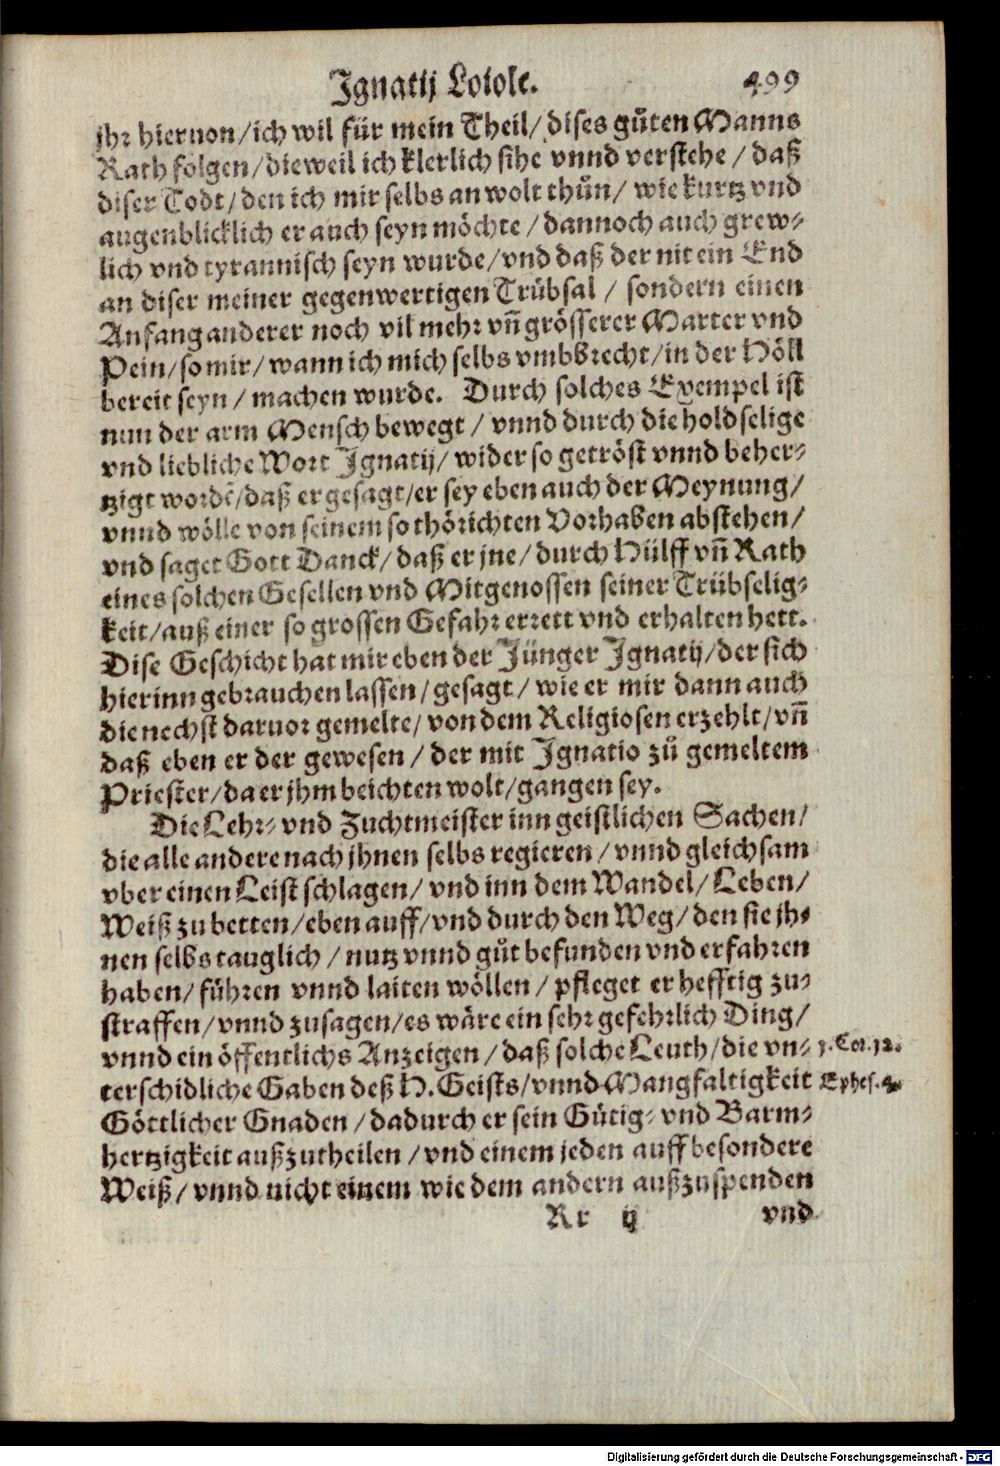 Ignatij Loiole. 499
jhr hieruon/ich wil für mein Theil/dises gůten Manns
Rath folgen/dieweil ich klerlich sihe vnnd verstehe/daß
diser Todt/den ich mir selbs an wolt thůn/wie kurtz vnd
augenblicklich er auch seyn möchte/dannoch auch grew-
lich vnd tyrannisch seyn wurde/vnd daß der nit ein End
an diser meiner gegenwertigen Trübsal/sondern einen
Anfang anderer noch vil mehr vñ grösserer Marter vnd
Pein/so mir/wann ich mich selbs vmbbrecht/in der Höll
bereit seyn/machen wurde. Durch solches Exempel ist
nun der arm Mensch bewegt/vnnd durch die holdselige
vnd liebliche Wort Ignatij/wider so getröst vnnd beher-
tzigt wordẽ/daß er gesagt/er sey eben auch der Meynung/
vnnd wölle von seinem so thörichten Vorhaben abstehen/
vnd saget Gott Danck/daß er jne/durch Hülff vñ Rath
eines solchen Gesellen vnd Mitgenossen seiner Trübselig-
keit/auß einer so grossen Gefahr errett vnd erhalten hett.
Dise Geschicht hat mir eben der Jünger Ignatij/der sich
hierinn gebrauchen lassen/gesagt/wie er mir dann auch
die nechst daruor gemelte/von dem Religiosen erzehlt/vñ
daß eben er der gewesen/der mit Ignatio zů gemeltem
Priester/da er jhm beichten wolt/gangen sey.
Die Lehr- vnd Zuchtmeister inn geistlichen Sachen/
die alle andere nach jhnen selbs regieren/vnnd gleichsam
vber einen Leist schlagen/vnd inn dem Wandel/Leben/
Weiß zu betten/eben auff/vnd durch den Weg/den sie jh-
nen selbs tauglich/nutz vnnd gůt befunden vnd erfahren
haben/führen vnnd laiten wöllen/pfleget er hefftig zu-
straffen/vnnd zusagen/es wäre ein sehr gefehrlich Ding/
vnnd ein öffentlichs Anzeigen/daß solche Leuth/die vn- 1. Cor. 12.
terschidliche Gaben deß H. Geists/vnnd Mangfaltigkeit Ephes. 4.
Göttlicher Gnaden/dadurch er sein Gütig- vnd Barm-
hertzigkeit außzutheilen/vnd einem jeden auff besondere
Weiß/vnnd nicht einem wie dem andern außzuspenden
Rr ij vnd
Digitalisierung gefördert durch die Deutsche Forschungsgemeinschaft - DFG